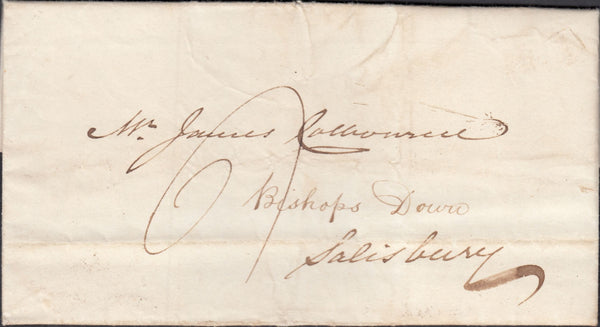 Mr James
Bishops Down
Salisbury